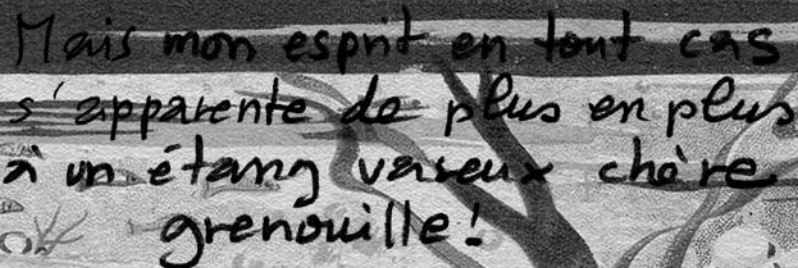 Mais mon esprit en tout cas
s'apparente de plus en plus
à un étang vaseux chère
grenouille !